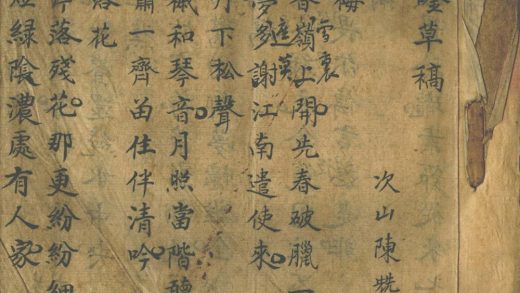 草稿
次山陳
梅
春嶺上開先春破臘一
雪裏
夢多謝江南遣使來
月下松聲
和琴音月照當階聽
一齊畄住伴清吟
落花
落殘花那更紛紛細
綠陰濃處有人家